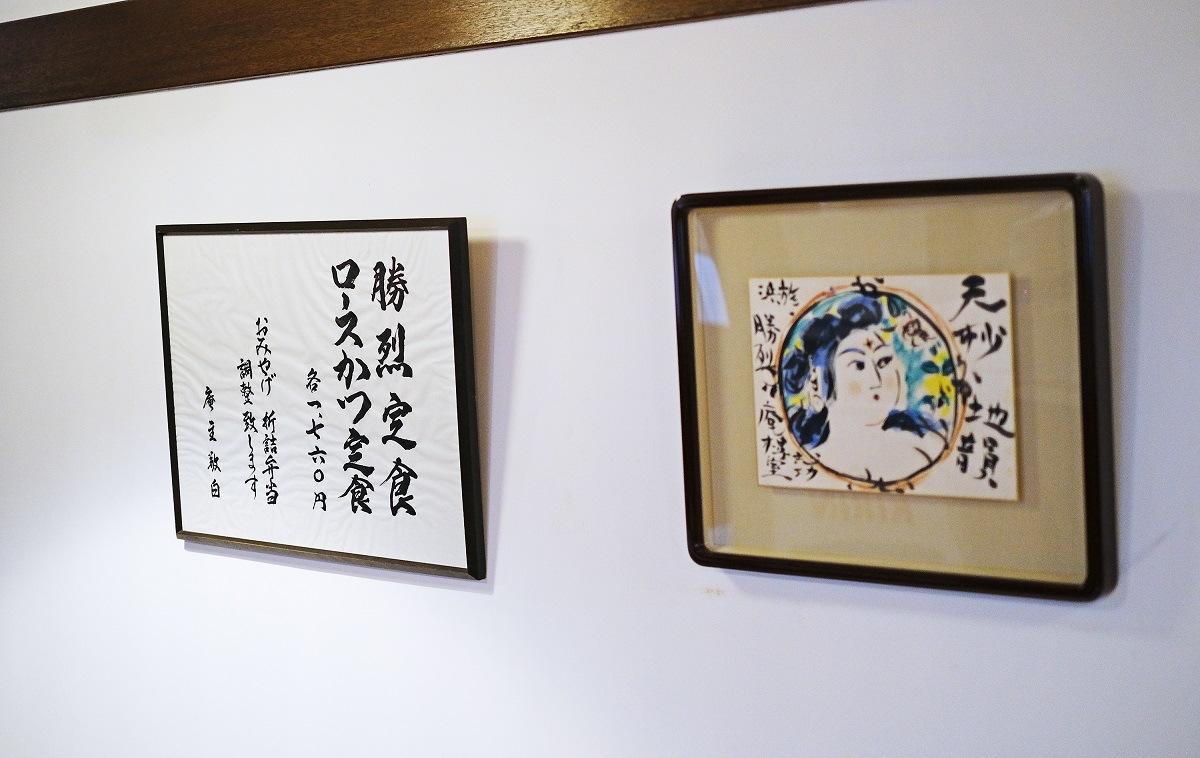 勝烈定食
ロースかツ定食
各一、七六〇円
おみやげ 折詰弁当
調整致します
庵主敬白
天妙
地韻
勝烈庵